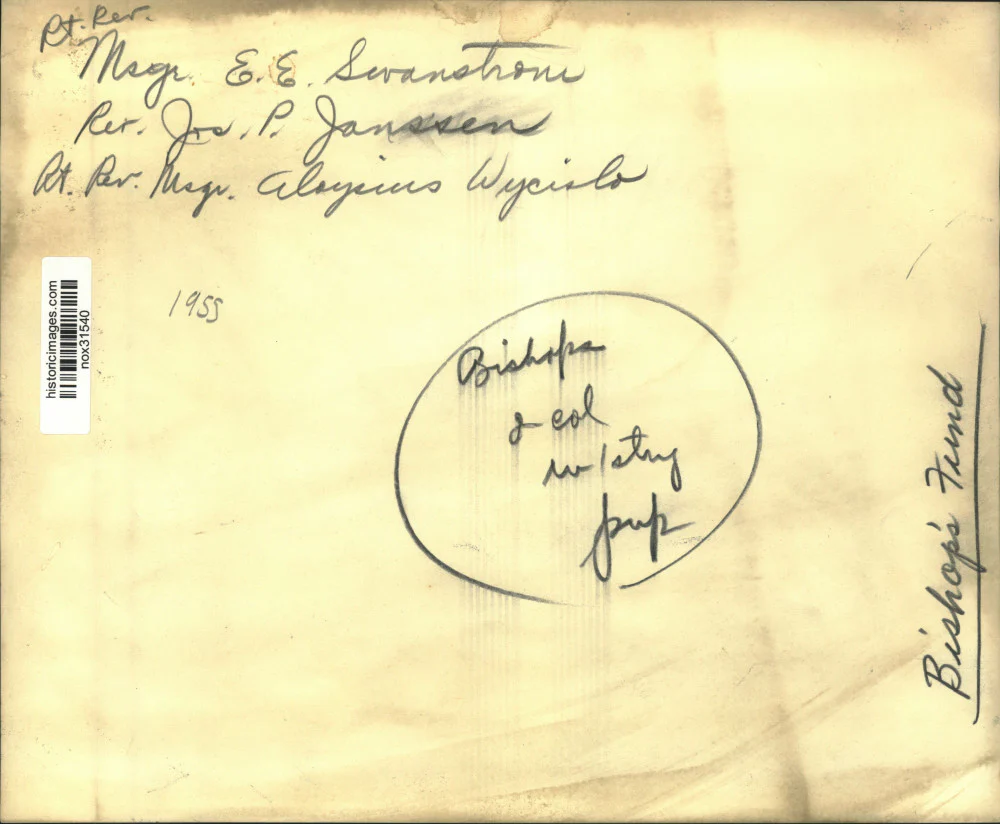 Rt. Rev.
Msgr. E. E. Swanstrom
Rev. Jos. P. Janssen
Rt. Rev. Msgr. Aloysius Wycislo
1955
historicimages.com
nox31540
Bishops
2 col
w/stry
Bishop's Fund